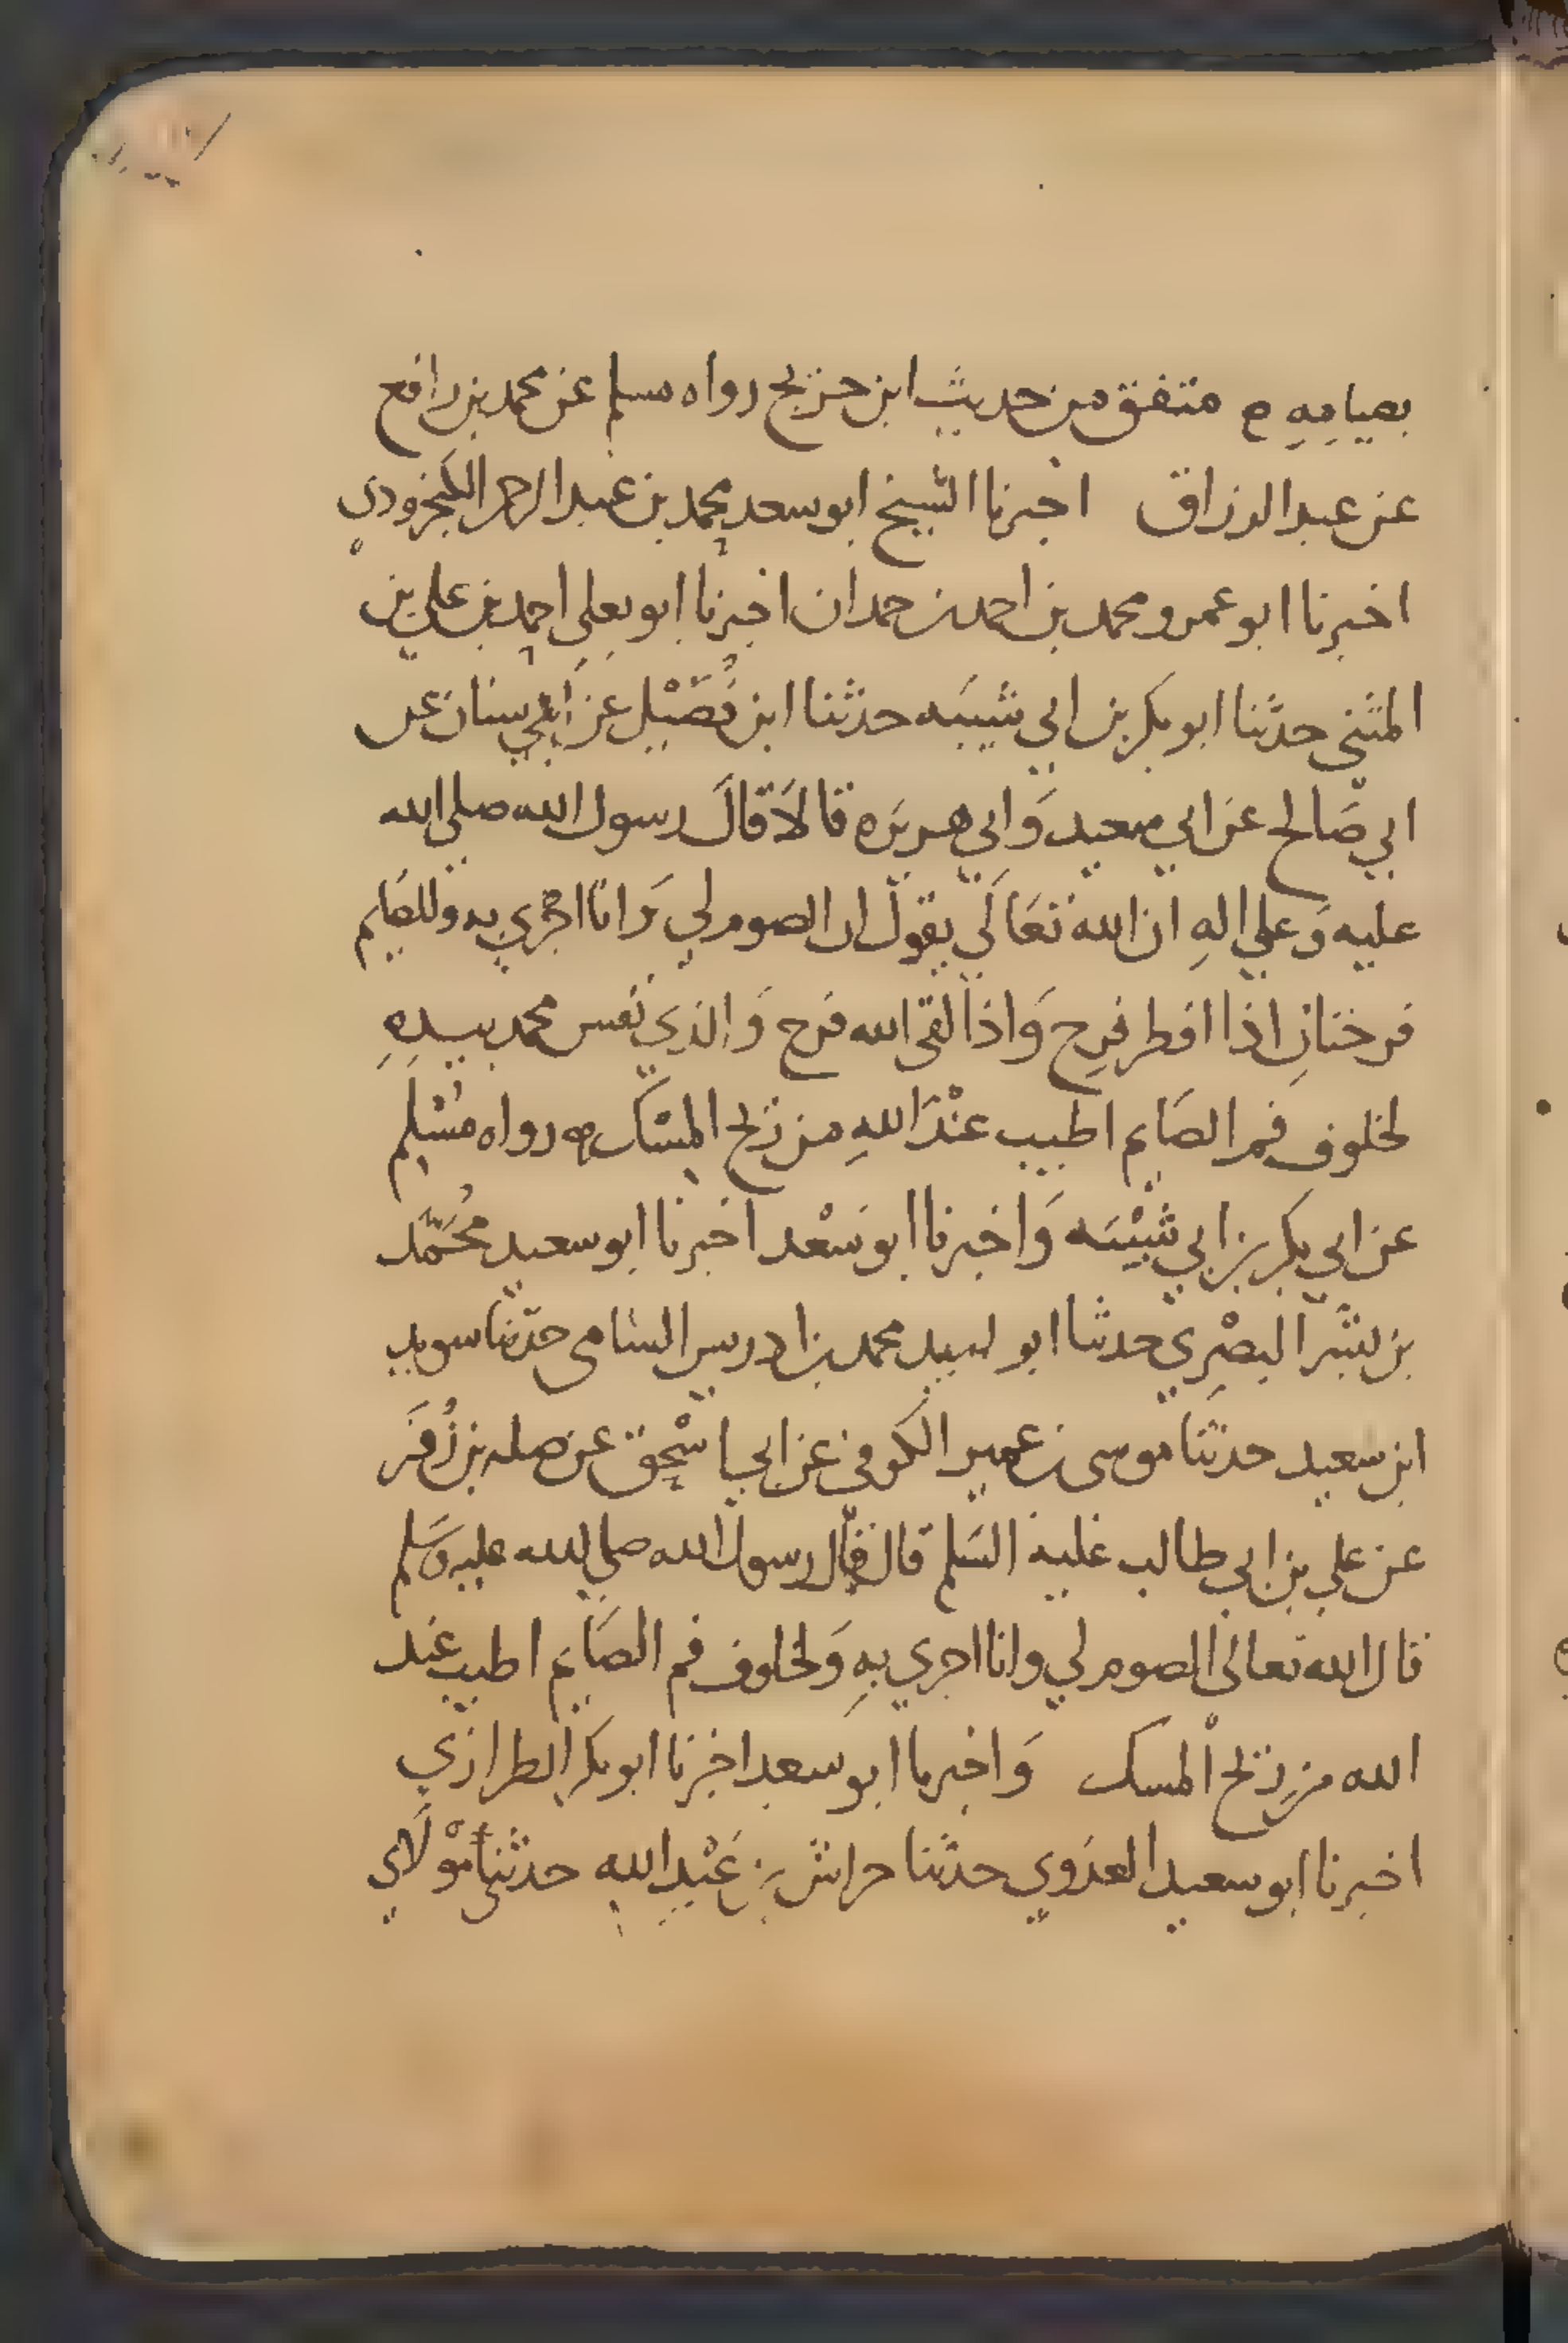 بصيامِهِ م متفق من حديث ابن جريج رواه مسلم عن محمد بن رافع
عن عبد الرزاق اخبرنا الشيخ ابو سعد محمد بن عبد الرحمن الكنجرودي
اخبرنا ابو عمرو محمد بن احمد بن حمدان اخبرنا ابو يعلي احمد بن علي بن
المثني حدثنا ابو بكر بن ابي شيبَه حدثنا ابن فُضَيْل عن ابي سنان عن
ابي صَالح عن ابي سعيد وَابي هريرَه قالَا قالَ رسول الله صلى الله
عليه وَعلي الهِ ان الله تعَالَي يقول ان الصوم لي وَانا اجزي به وللصَايم
فرحتانِ اذا افطر فرِح وَاذا لقى الله فرح وَالذي نفس محمد بيدِهِ
لخلوف فم الصَايم اطيب عنْدَ اللهِ من ريح المسْك رواه مُسْلِم
عن ابي بكر بن ابي شَيْبَه وَاخبرنا ابو سَعْد اخبرنا ابو سعيد محُمَّد
بن بشر البصْرِي حدثنا ابو لبيد محمد بن ادريس السامى حدثنا سويد
ابن سعيد حدثنا موسى بن عمير الكوفي عن ابي اسْحق عن صله بن زُفَر
عن علي بن ابي طالب عليه السَلم قال قال رسول الله صلي الله عليه وسَلم
قال الله تعالى الصوم لي وانا اجزي بهِ وَلخلوف فم الصَايم اطيب عند
الله من ريح المسك وَاخبرنا ابو سعد اخبرنا ابو بكر الطرازي
اخبرنا ابو سعيد العدَوي حدثنا خراش بن عَبْدِ الله حدثني مَوْلَاي